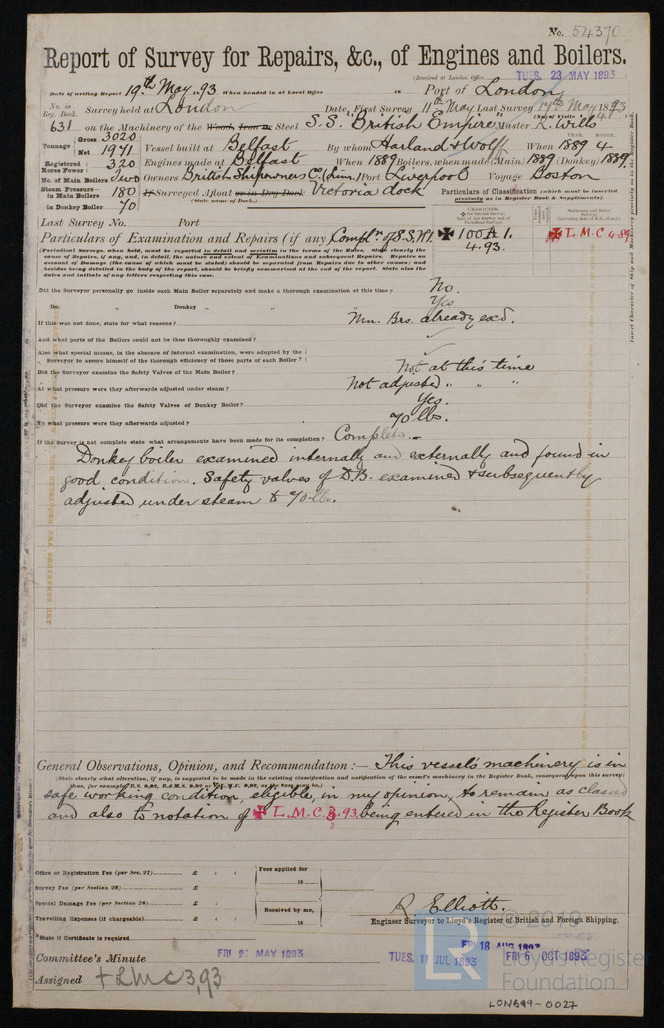 No. 54370
Report of Survey for Repairs, &c., of Engines and Boilers.
(Received at London Office TUES. 23 MAY 1893
Date of writing Report 19th May 1893 When handed in at Local Office 18 Port of London
No. in Reg. Book. Survey held at London Date, First Survey 11th May Last Survey 17th May 1893
(No. of Visits 4)
631 on the Machinery of the Wood, Iron or Steel S.S. "British Empire" Master R. Wills
Tonnage Gross 3020 Net 1971 Vessel built at Belfast By whom Harland & Wolf When 1889 4
YEAR. MONTH.
Registered Horse Power 320 Engines made at Belfast When 1889 Boilers, when made (Main) 1889 (Donkey) 1889
No. of Main Boilers Two Owners British Shipowners Co. (Lim.) Port Liverpool Voyage Boston
Steam Pressure in Main Boilers 180 If Surveyed Afloat or in Dry Dock Victoria dock
(State name of Dock.)
in Donkey Boiler 70
Particulars of Classification (which must be inserted precisely as in Register Book & Supplements).
Last Survey No. Port
CHARACTER
✠ 100A1.
4.93.
✠ L.M.C 4.89
Particulars of Examination and Repairs (if any) Compln. of S.S. No 1.
(Periodical Surveys, when held, must be reported in detail and seriatim in the terms of the Rules. State clearly the
cause of Repairs, if any, and, in detail, the nature and extent of Examinations and subsequent Repairs. Repairs on
account of Damage (the cause of which must be stated) should be separated from Repairs due to other causes; and
besides being detailed in the body of the report, should be briefly summarised at the end of the report. State also the
dates and initials of any letters respecting this case.
Did the Surveyor personally go inside each Main Boiler separately and make a thorough examination at this time? No.
Do. " Donkey " " " Yes
If this was not done, state for what reasons? Mn. Brs. already exd.
And what parts of the Boilers could not be thoroughly examined?
Also what special means, in the absence of internal examination, were adopted by the
Surveyor to assure himself of the thorough efficiency of those parts of each Boiler?
Did the Surveyor examine the Safety Valves of the Main Boiler? Not at this time
At what pressure were they afterwards adjusted under steam? Not adjusted " " "
Did the Surveyor examine the Safety Valves of Donkey Boiler? Yes.
To what pressure were they afterwards adjusted? 70 lbs.
If the Survey is not complete state what arrangements have been made for its completion? Complete.
Donkey boiler examined internally and externally and found in
good condition. Safety valves of D.B. examined & subsequently
adjusted under steam to 70 lb.
General Observations, Opinion, and Recommendation :— This vessel's machinery is in
(State clearly what alteration, if any, is suggested to be made in the existing classification and notification of the vessel's machinery in the Register Book, consequent upon this survey;
safe working condition, eligible, in my opinion, to remain as classed
and also to notation of ✠ L.M.C. 3.93 being entered in the Register Book
Office or Registration Fee (per Sec. 27) £ : :
Fees applied for
18
Survey Fee (per Section 28) £ : :
Special Damage Fee (per Section 28) £ : :
Received by me,
18
Travelling Expenses (if chargeable) £ : :
R. Elliott.
Engineer Surveyor to Lloyd's Register of British and Foreign Shipping.
State if Certificate is required
Committee's Minute
TUES. 11 JUL 1893
FRI 18 AUG 1893
FRI 6 OCT 1893
Assigned + LMC 3,93
LR
© 2019
Lloyd's Register
Foundation
LON699-0027